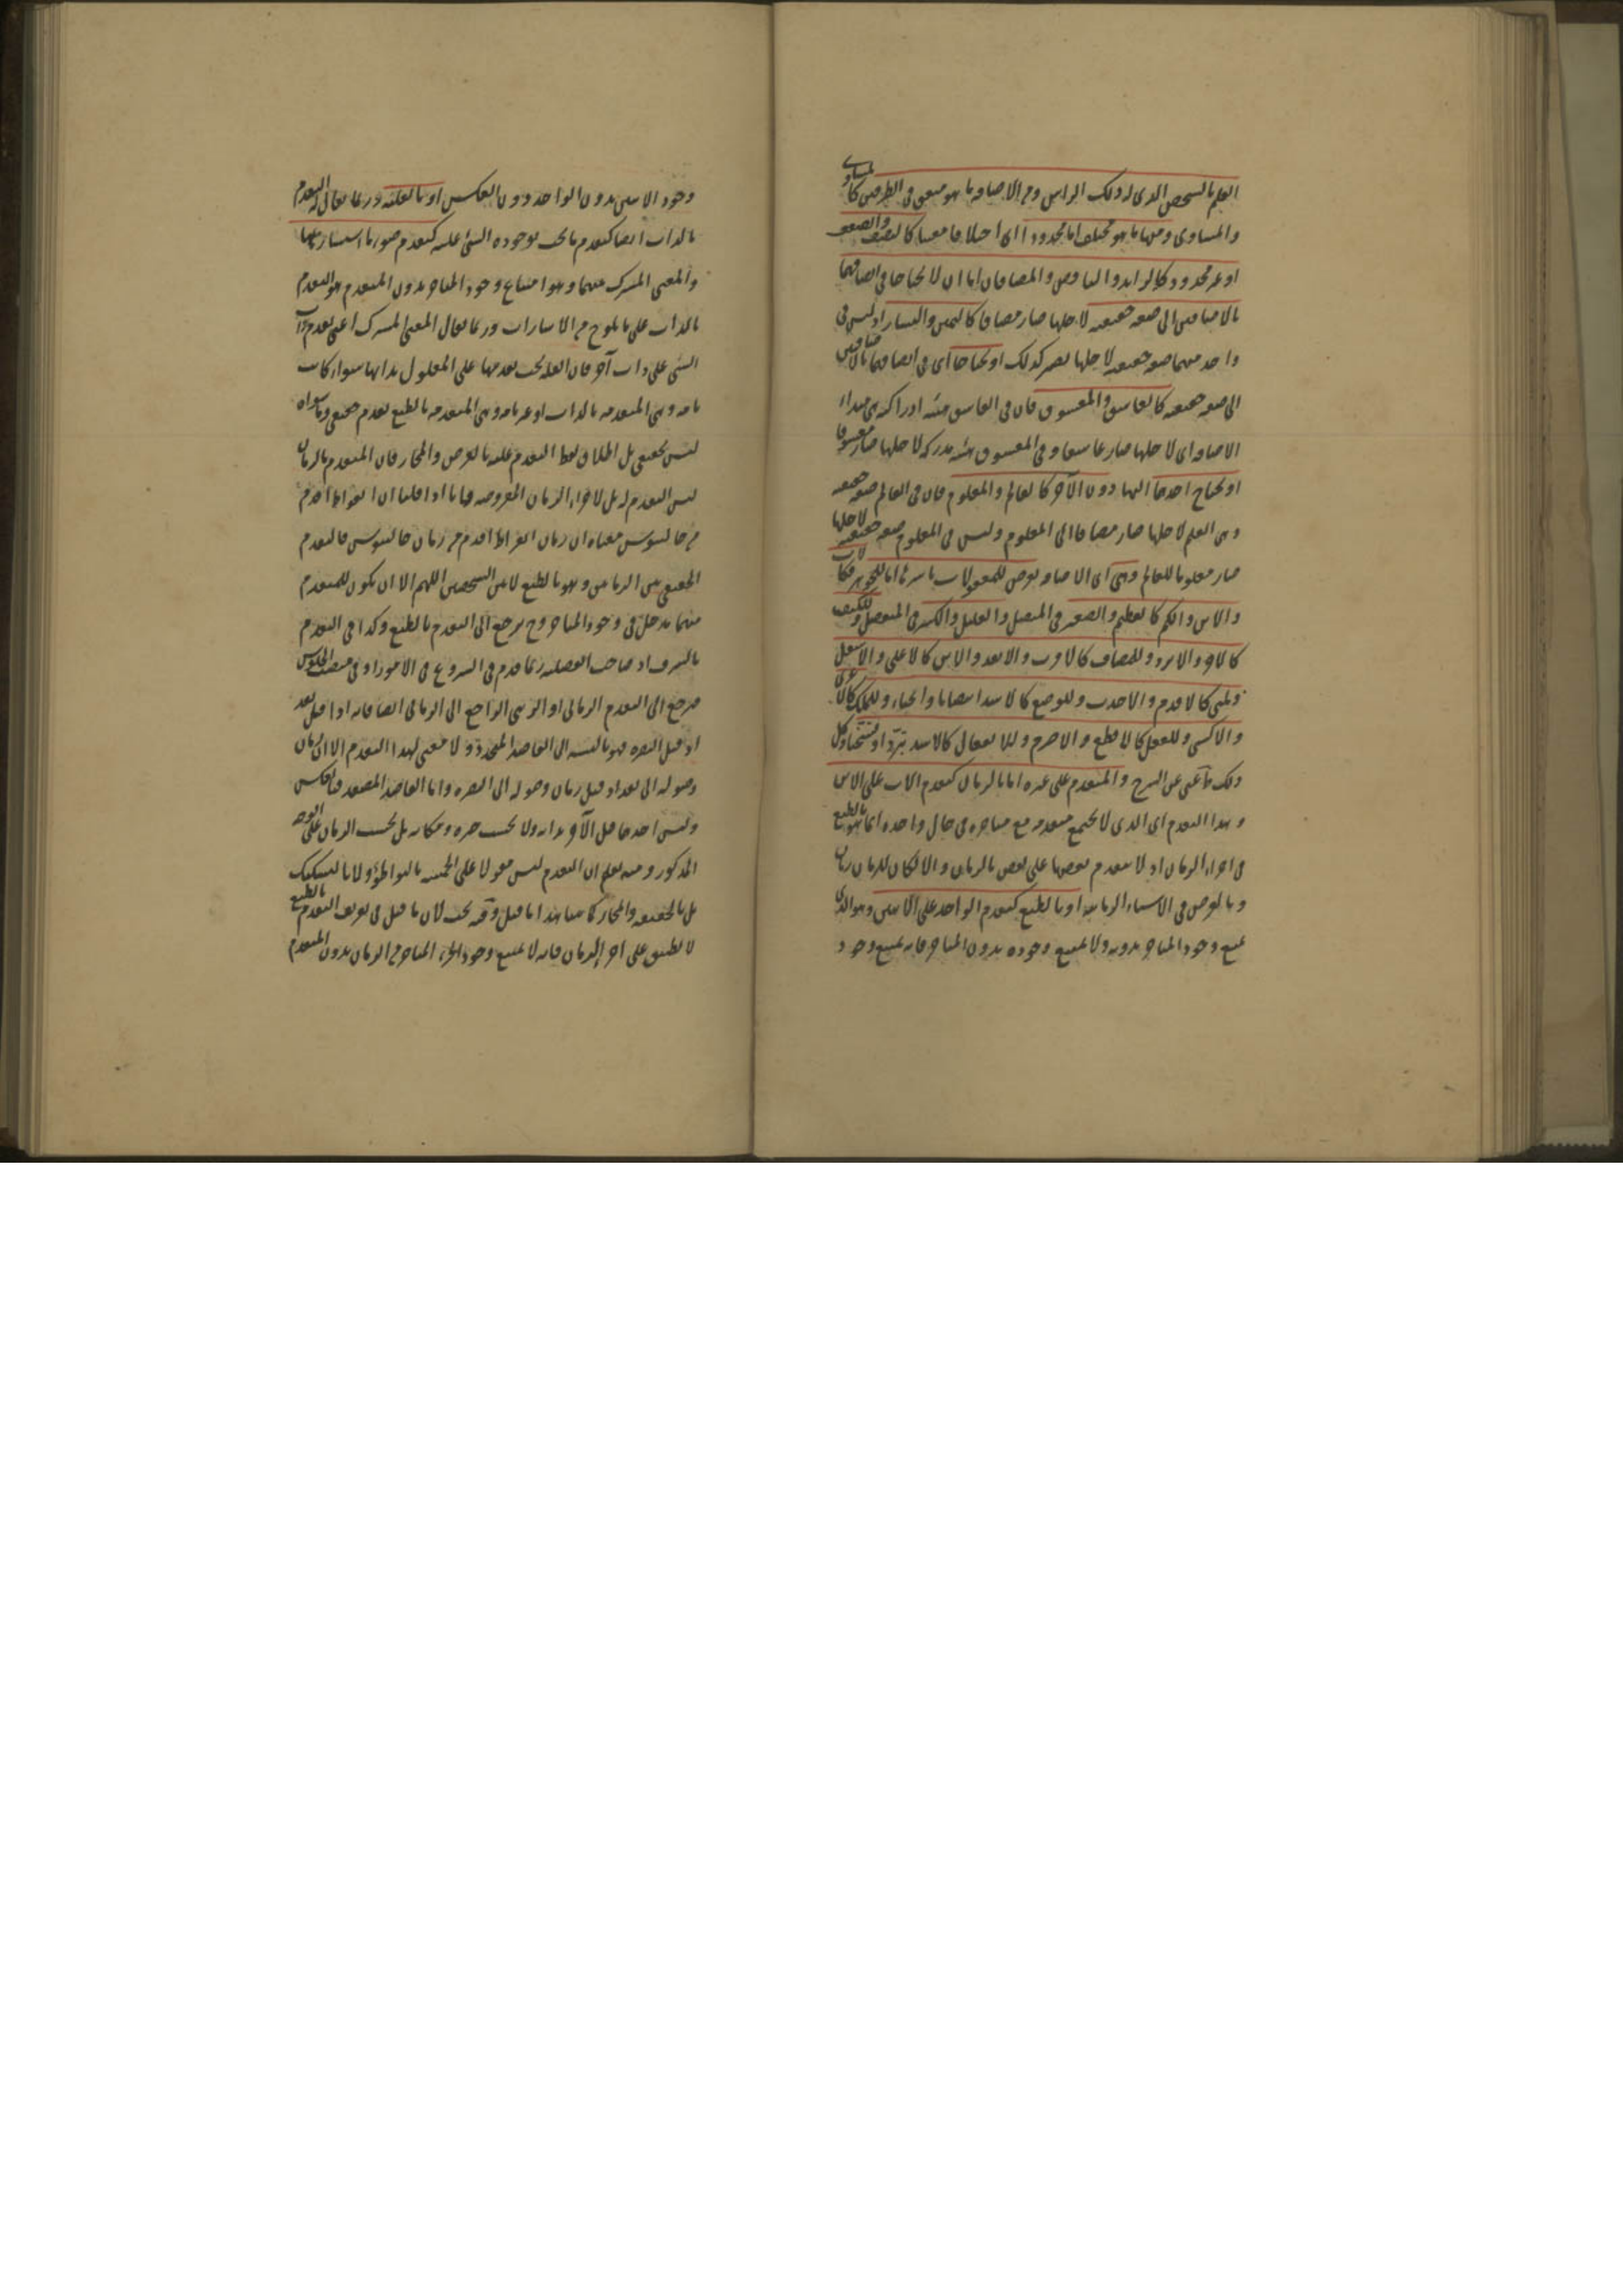 العلم بالشخص الذى له ذلك الراس ومن الاضافة ما هو متفق فى الطرفين كالمساوى
والمساوى ومنها ما هو مختلف اما محدودا اى اختلافا معينا كالنصف والضعف
او غير محدود كالزايد والناقص والمضافان اما ان لا يحتاجا فى اتصافهما
بالاضافتين الى صفة حقيقية لاجلها صار مضافا كاليمين واليسار اذ ليس فى
واحد منهما صفة حقيقية لاجلها يصير كذلك او يحتاجا اى فى اتصافهما بالاضافتين
الى صفة حقيقية كالعاشق والمعشوق فان فى العاشق هيئة ادراكية هى مبداء
الاضافة اى لاجلها صار عاشقا وفى المعشوق هيئة مدركة لاجلها صار معشوقا
او يحتاج احدهما اليها دون الآخر كالعالم والمعلوم فان فى العالم صفة حقيقية
وهى العلم لاجلها صار مضافا الى المعلوم وليس فى المعلوم صفة حقيقية لاجلها
صار معلوما للعالم وهى اى الاضافة تعرض للمقولات باسرها اما للجوهر فكالاب
والابن والكم كالعظيم والصغير فى المتصل والقليل والكثير فى المنفصل وللكيف
كالاحر والابرد وللمضاف كالاقرب والابعد والاين كالاعلى والاسفل
ولمتى كالاقدم والاحدث وللوضع كالاشد انتصابا وانحناء وللملك كالاعرى
والاكسى وللفعل كالاقطع والاصرم وللانفعال كالاشد تبردا وتسخنا وكل
ذلك ما غنى عن الشرح والمتقدم على غيره اما بالزمان كتقدم الاب على الابن
وهذا التقدم اى الذى لا يجتمع متقدمه مع متاخره فى حال واحدة انما هو بالطبع
فى اجزاء الزمان اذ لا يتقدم بعضها على بعض بالزمان والا لكان للزمان زمان
وبالعرض فى الاشياء الزمانية او بالطبع كتقدم الواحد على الاثنين وهو الذى
يمتنع وجود المتاخر بدونه ولا يمتنع وجوده بدون المتاخر فانه يمتنع وجود
وجود الاثنين بدون الواحد دون العكس او بالعلية وربما يقال له التقدم
بالذات ايضا كتقدم ما يجب بوجوده الشئ عليه كتقدم
والمعنى المشترك بينهما وهو امتناع وجود المتاخر بدون المتقدم هو التقدم
بالذات على ما يلوح من الاشارات وربما يقال المعنى المشترك اعنى تقدم ذات
الشئ على ذات آخر فان العلة يجب تقدمها على المعلول بذاتها سواء كانت
تامة وهى المتقدمة بالذات او غير تامة وهى المتقدمة بالطبع تقدم حقيقى وما سواه
ليس بحقيقى بل اطلاق لفظ التقدم عليه بالعرض والمجاز فان المتقدم بالزمان
ليس التقدم له بل لاجزاء الزمان المفروضة فانا اذا قلنا ان ابقراط اقدم
من جالينوس معناه ان زمان ابقراط اقدم من زمان جالينوس فالتقدم
الحقيقى بين الزمانين وهو بالطبع لا بين الشخصين اللهم الا ان يكون للمتقدم
منهما مدخل فى وجود المتاخر وح يرجع الى التقدم بالطبع وكذا فى التقدم
بالشرف اذ صاحب الفضيلة ربما قدم فى الشروع فى الامور او فى منصب الجلوس
فيرجع الى التقدم الزمانى او الرتبى الراجع الى الزمانى ايضا فانه اذا قيل بغداد
قبل البصرة فهو بالنسبة الى القاصد المنحدر ولا معنى لهذا التقدم الا ان زمان
وصوله الى بغداد قبل زمان وصوله الى البصرة واما القاصد المصعد فبالعكس
وليس احدهما قبل الآخر بذاته ولا بحسب حيزه ومكانه بل بحسب الزمان على الوجه
المذكور ومنه يعلم ان التقدم ليس مقولا على الخمسة بالتواطؤ ولا بالتشكيك
بل بالحقيقة والمجاز كما بينا هذا ما قيل وفيه بحث لان ما قيل فى تعريف التقدم بالطبع
لا ينطبق على اجزاء الزمان فانه لا يمتنع وجود الجزء المتاخر من الزمان بدون المتقدم